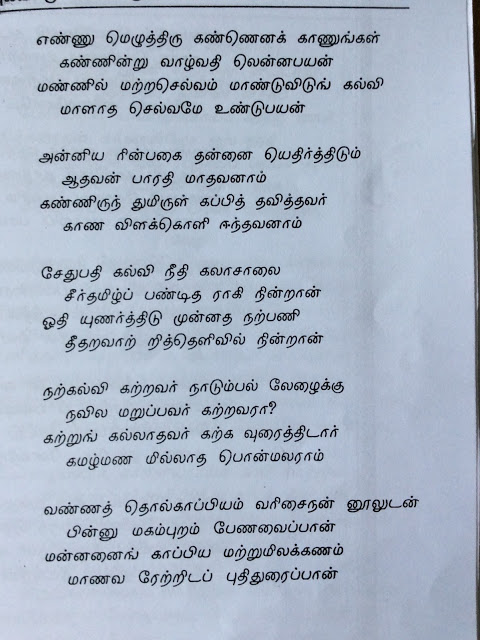 எண்ணு மெழுத்திரு கண்ணெனக் காணுங்கள்
கண்ணின்று வாழ்வதி லென்னபயன்
மண்ணில் மற்றசெல்வம் மாண்டுவிடுங் கல்வி
மாளாத செல்வமே உண்டுபயன்
அன்னிய ரின்பகை தன்னை யெதிர்த்திடும்
ஆதவன் பாரதி மாதவனாம்
கண்ணிருந் துமிருள் கப்பித் தவித்தவர்
காண விளக்கொளி ஈந்தவனாம்
சேதுபதி கல்வி நீதி கலாசாலை
சீர்தமிழ்ப் பண்டித ராகி நின்றான்
ஓதி யுணர்த்திடு முன்னத நற்பணி
தீதறவாற் றித்தெளிவில் நின்றான்
நற்கல்வி கற்றவர் நாடும்பல் லேழைக்கு
நவில மறுப்பவர் கற்றவரா?
கற்றுங் கல்லாதவர் கற்க வுரைத்திடார்
கமழ்மண மில்லாத பொன்மலராம்
வண்ணத் தொல்காப்பியம் வரிசைநன் னூலுடன்
பின்னு மகம்புறம் பேணவைப்பான்
மன்னனைங் காப்பிய மற்றுமிலக்கணம்
மாணவ ரேற்றிடப் புதிதுரைப்பான்